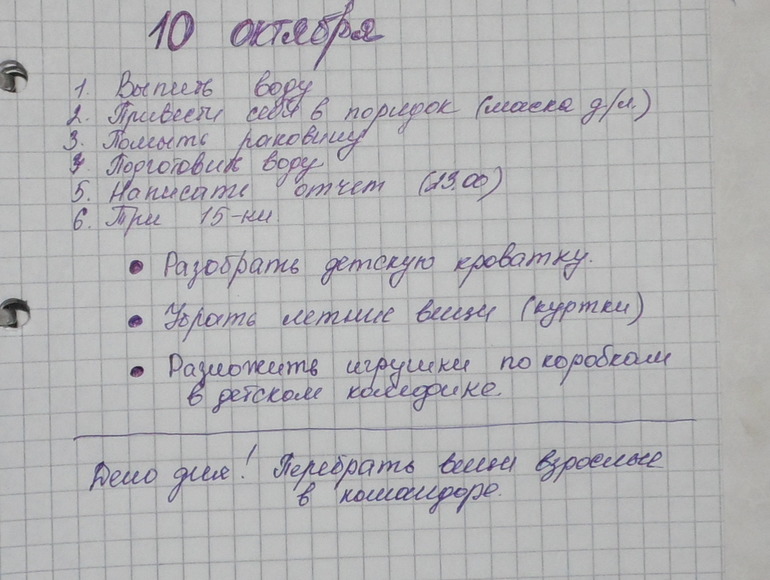 10 октября
1. Выпить воду
2. Привести себя в порядок (маска д/л.)
3. Помыть раковину
4. Подготовить воду
5. Написать отчет (23.00)
6. Три 15-ки
• Разобрать детскую кроватку.
• Убрать летние вещи (куртки)
• Разложить игрушки по коробкам
в детском комодике.
Дело дня! Перебрать вещи взрослые
в командоре.